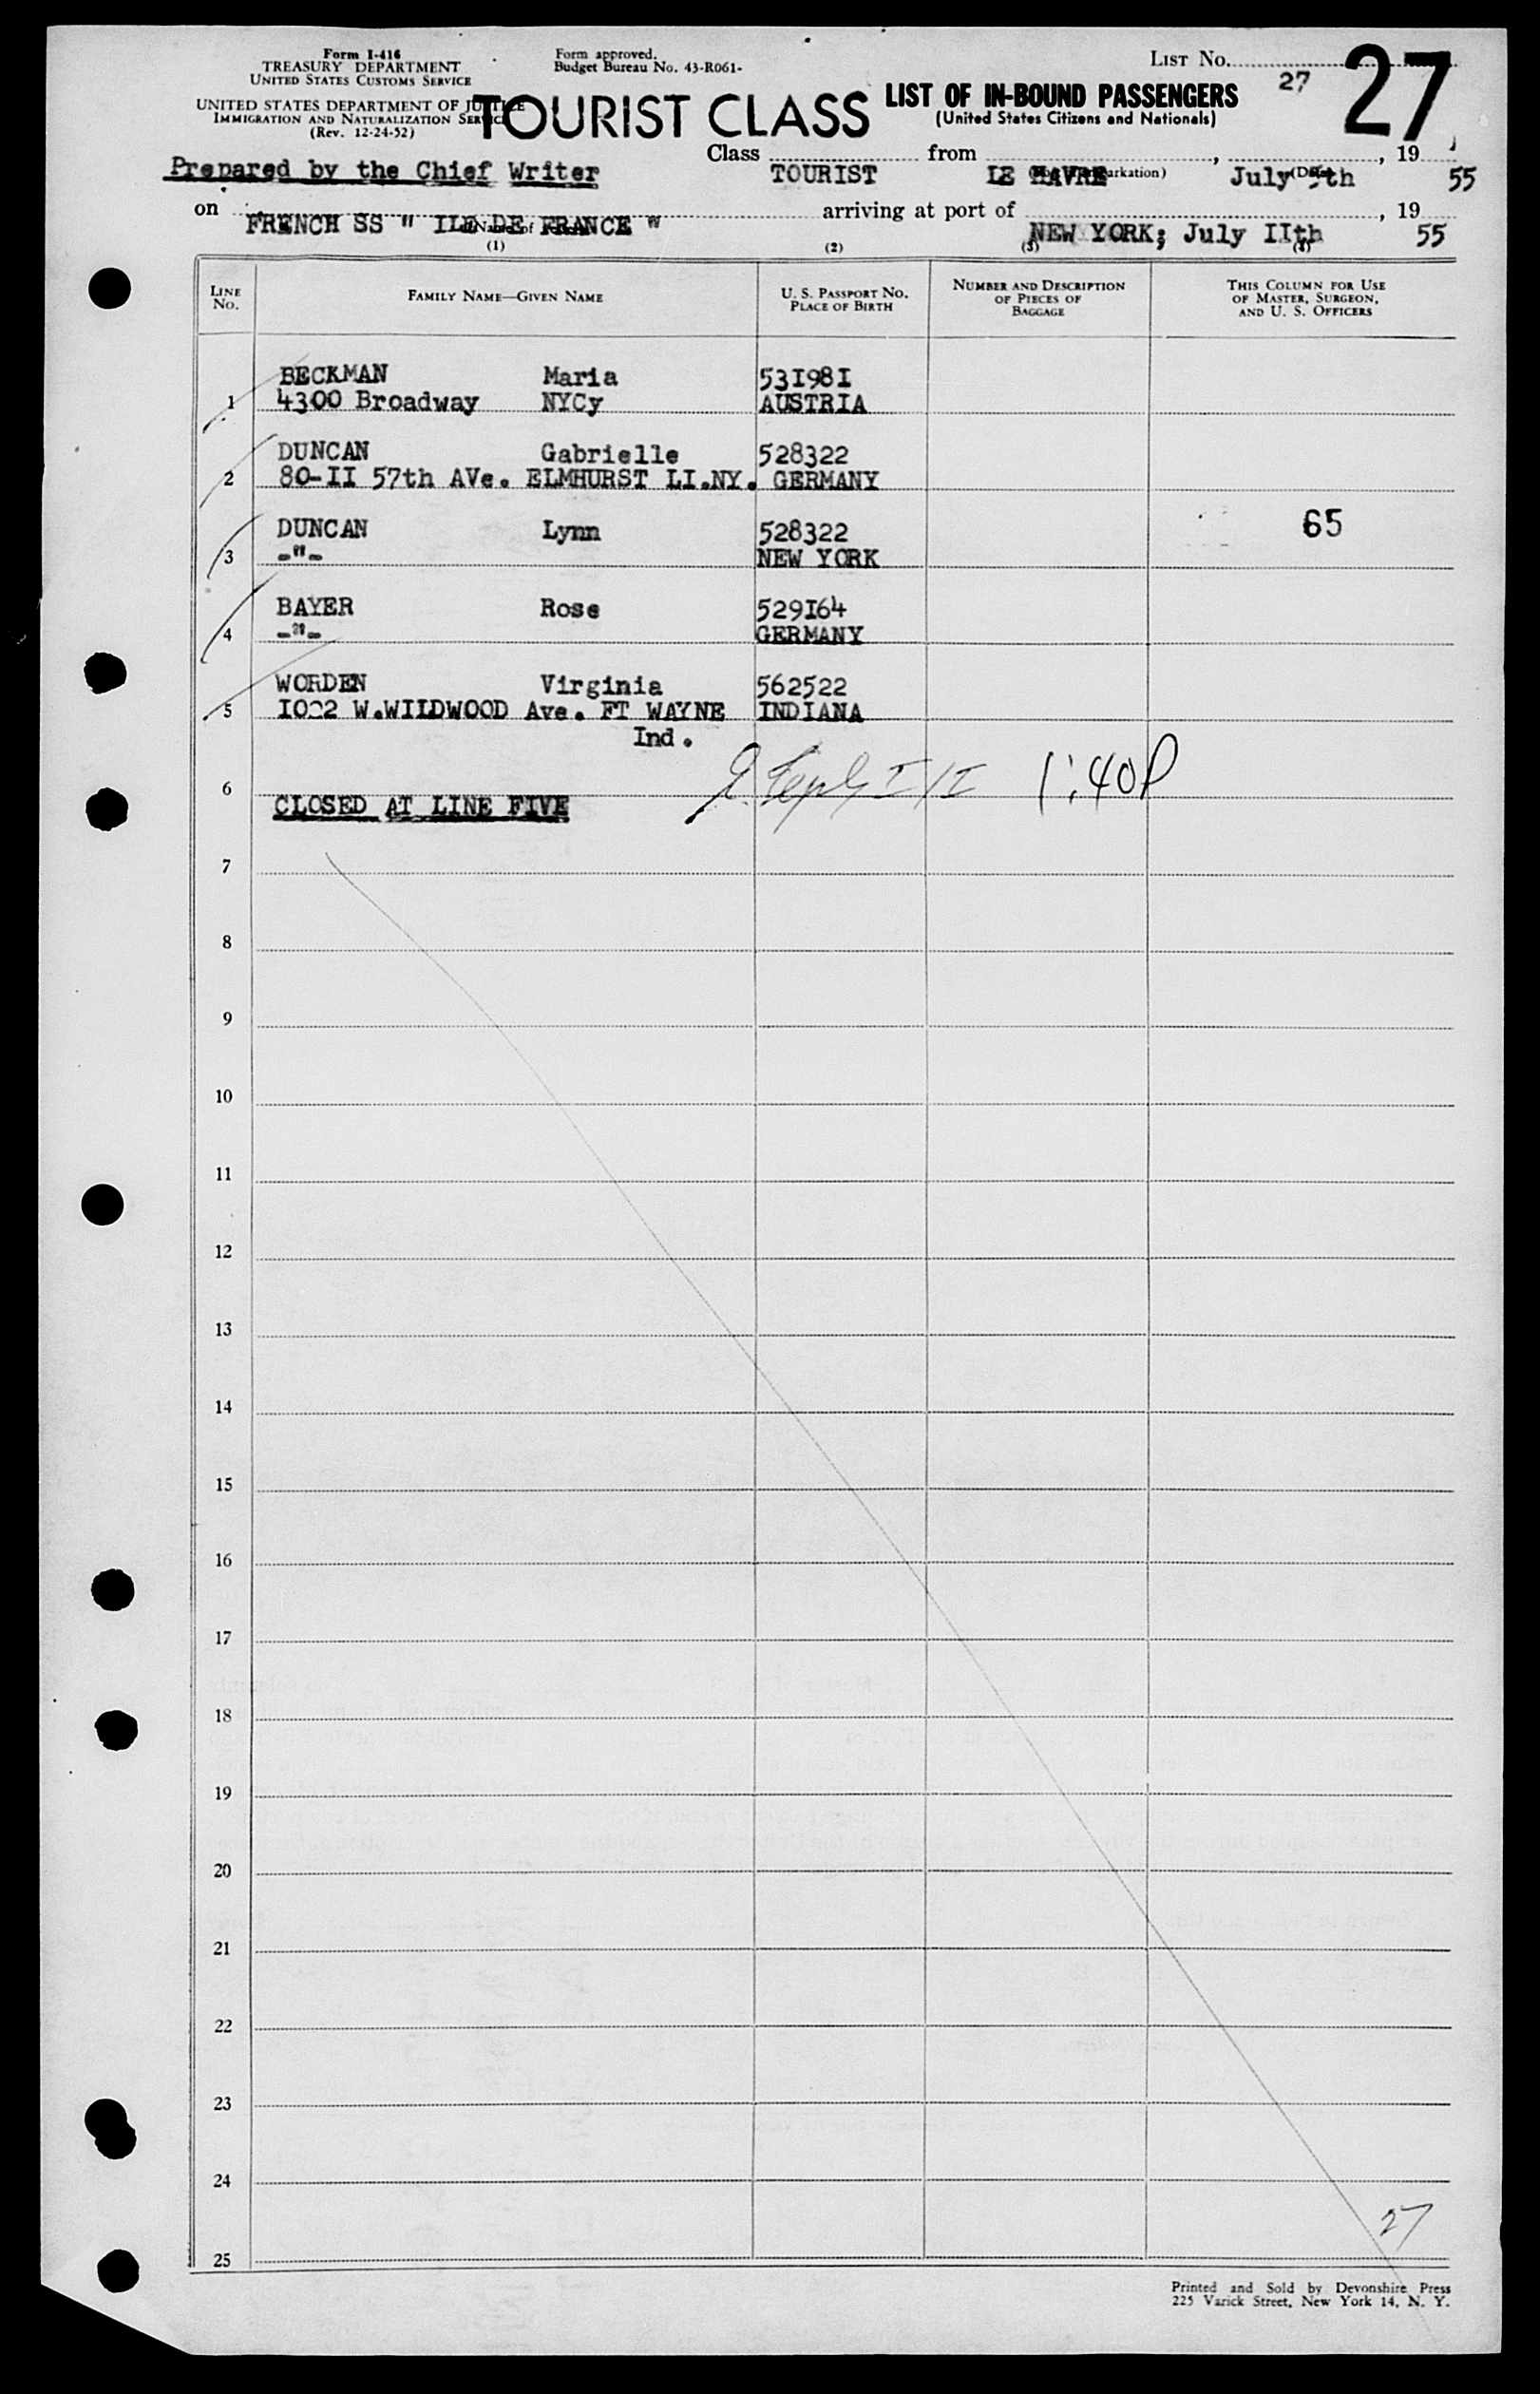 Form I-416
TREASURY DEPARTMENT
UNITED STATES CUSTOMS SERVICE
UNITED STATES DEPARTMENT OF JUSTICE
IMMIGRATION AND NATURALIZATION SERVICE
(Rev. 12-24-52)
Form approved.
Budget Bureau No. 43-R061-
TOURIST CLASS
LIST OF IN-BOUND PASSENGERS
(United States Citizens and Nationals)
LIST No. 27
27
Prepared by the Chief Writer
Class TOURIST from LE HAVRE, July 5th, 1955
on FRENCH SS " ILE DE FRANCE " arriving at port of NEW YORK; July IIth, 1955
(1) (2) (3) (4)
LINE No. FAMILY NAME—GIVEN NAME U. S. PASSPORT No. PLACE OF BIRTH NUMBER AND DESCRIPTION OF PIECES OF BAGGAGE THIS COLUMN FOR USE OF MASTER, SURGEON, AND U. S. OFFICERS
BECKMAN Maria 53I98I
1 4300 Broadway NYCy AUSTRIA
DUNCAN Gabrielle 528322
2 80-II 57th AVe. ELMHURST LI.NY. GERMANY
DUNCAN Lynn 528322 65
3 -"- NEW YORK
BAYER Rose 529I64
4 -"- GERMANY
WORDEN Virginia 562522
5 I022 W.WILDWOOD Ave. FT WAYNE INDIANA
Ind.
6 1:40P
CLOSED AT LINE FIVE
7
8
9
10
11
12
13
14
15
16
17
18
19
20
21
22
23
24
27
25
Printed and Sold by Devonshire Press
225 Varick Street, New York 14, N. Y.